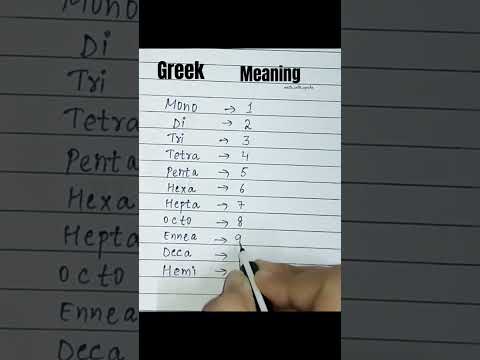 Greek Meaning
Mono → 1
Di → 2
Tri → 3
Tetra → 4
Penta → 5
Hexa → 6
Hepta → 7
Octo → 8
Ennea → 9
Deca →
Hemi →
Mono
Di
Tri
Tetra
Penta
Hexa
Hepta
Octo
Ennea
Deca